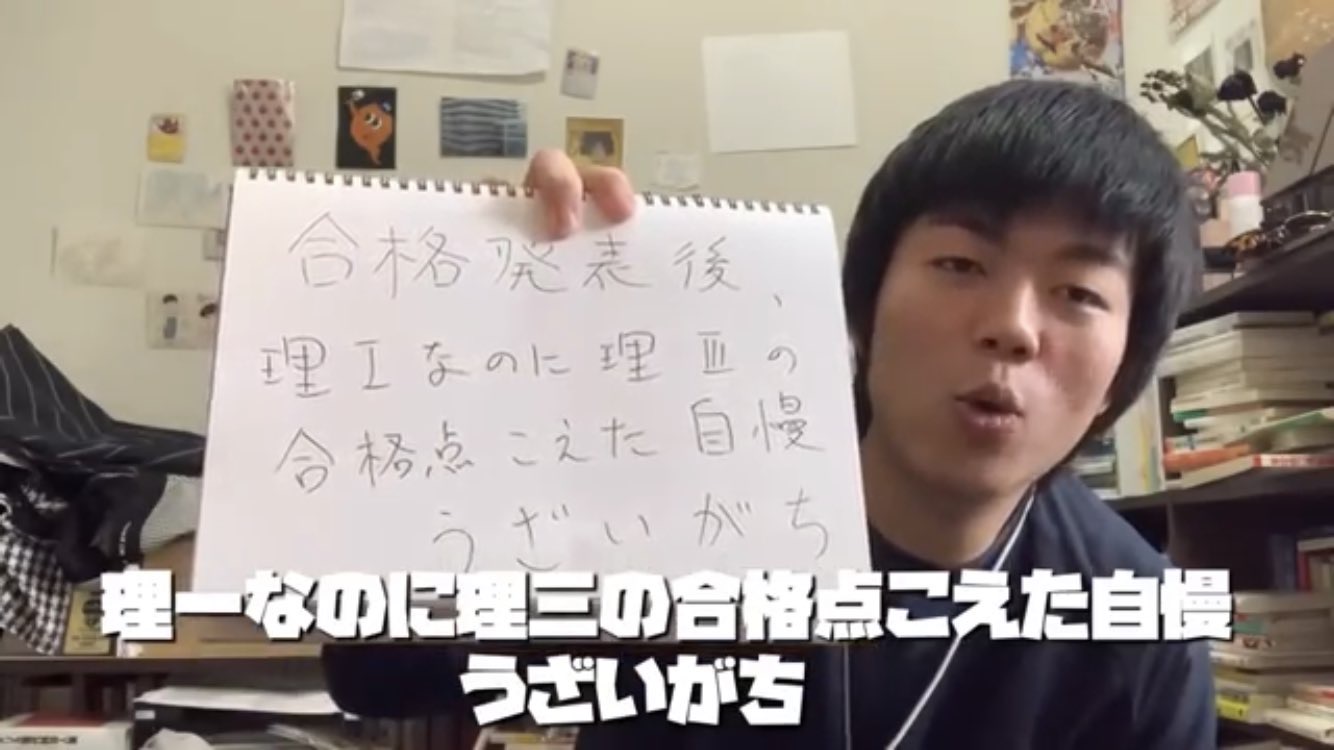 合格発表後、
理Ⅰなのに理Ⅲの
合格点こえた自慢
うざいがち
理一なのに理三の合格点こえた自慢
うざいがち